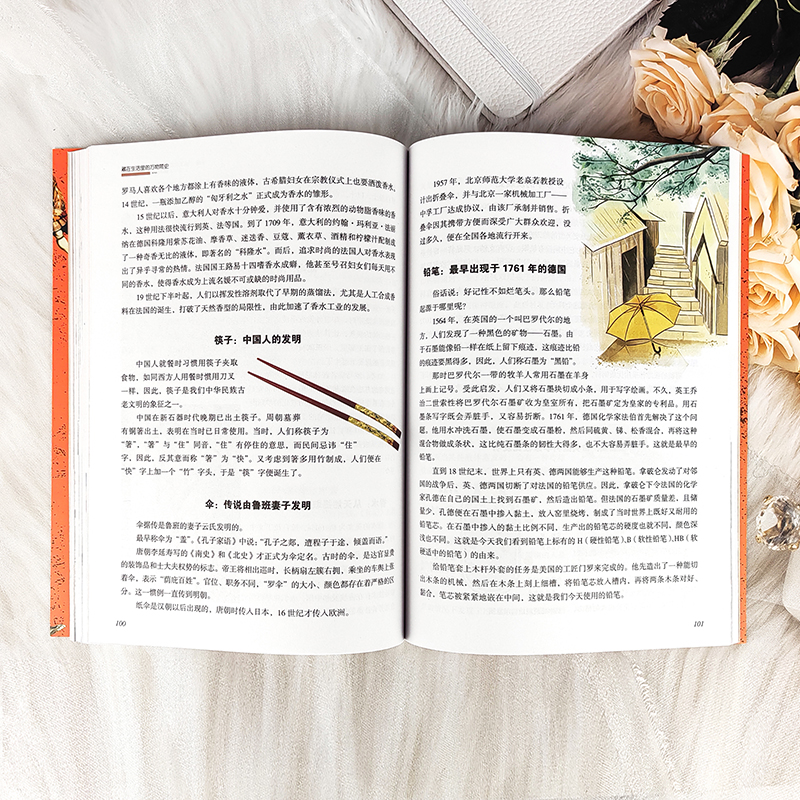 藏在生活里的万物简史
罗马人喜欢各个地方都涂上有香味的液体，古希腊妇女在宗教仪式上也要洒泼香水。
14 世纪，一瓶添加乙醇的“匈牙利之水”正式成为香水的雏形。
15 世纪以后，意大利人对香水十分钟爱，并使用了含有浓烈的动物脂香味的香
水，这种用法很快流行到英、法等国。到了 1709 年，意大利的约翰·玛利亚·法丽
纳在德国科隆用紫苏花油、摩香草、迷迭香、豆蔻、薰衣草、酒精和柠檬汁配制成
了一种奇香无比的液体，即著名的“科隆水”。而后，追求时尚的法国人对香水表现
出了异乎寻常的热情。法国国王路易十四嗜香水成癖，他甚至号召妇女们每天用不
同的香水，使得香水成为上流名媛不可或缺的时尚用品。
19 世纪下半叶起，人们以挥发性溶剂取代了早期的蒸馏法，尤其是人工合成香
料在法国的诞生，打破了天然香型的局限性，由此加速了香水工业的发展。
筷子：中国人的发明
中国人就餐时习惯用筷子夹取
食物，如同西方人用餐时惯用刀叉
一样，因此，筷子是我们中华民族古
老文明的象征之一。
中国在新石器时代晚期已出土筷子。周朝墓葬
有铜箸出土，表明在当时已日常使用。当时，人们称筷子为
“箸”，“箸”与“住”同音，“住”有停住的意思，而民间忌讳“住”
字，因此，反其意而称“箸”为“快”。又考虑到箸多用竹制成，人们便在
“快”字上加一个“竹”字头，于是“筷”字便诞生了。
伞：传说由鲁班妻子发明
伞据传是鲁班的妻子云氏发明的。
最早称伞为“盖”。《孔子家语》中说：“孔子之郯，遭程子于途，倾盖而语。”
唐朝李延寿写的《南史》和《北史》才正式为伞定名。古时的伞，是达官显贵
的装饰品和士大夫权势的标志。帝王将相出巡时，长柄扇左簇右拥，乘坐的车舆上张
着伞，表示“荫庇百姓”。官位、职务不同，“罗伞”的大小、颜色都存在着严格的区
分。这一惯例一直传到明朝。
纸伞是汉朝以后出现的，唐朝时传入日本，16 世纪才传入欧洲。
100
1957 年，北京师范大学老焱若教授设
计出折叠伞，并与北京一家机械加工厂——
中孚工厂达成协议，由该厂承制并销售。折
叠伞因其携带方便而深受广大群众欢迎，没
过多久，便在全国各地流行开来。
铅笔：最早出现于 1761 年的德国
俗话说：好记性不如烂笔头。那么铅笔
起源于哪里呢？
1564 年，在英国的一个叫巴罗代尔的地
方，人们发现了一种黑色的矿物——石墨。由
于石墨能像铅一样在纸上留下痕迹，这痕迹比铅
的痕迹要黑得多，因此，人们称石墨为“黑铅”。
那时巴罗代尔一带的牧羊人常用石墨在羊身
上画上记号。受此启发，人们又将石墨块切成小条，用于写字绘画。不久，英王乔
治二世索性将巴罗代尔石墨矿收为皇室所有，把石墨矿定为皇家的专利品。用石
墨条写字既会弄脏手，又容易折断。1761 年，德国化学家法伯首先解决了这个问
题。他用水冲洗石墨，使石墨变成石墨粉，然后同硫黄、锑、松香混合，再将这种
混合物做成条状，这比纯石墨条的韧性大得多，也不大容易弄脏手。这就是最早的
铅笔。
直到 18 世纪末，世界上只有英、德两国能够生产这种铅笔。拿破仑发动了对邻
国的战争后，英、德两国切断了对法国的铅笔供应。因此，拿破仑下令法国的化学
家孔德在自己的国土上找到石墨矿，然后造出铅笔。但法国的石墨矿质量差，且储
量少，孔德便在石墨中掺入黏土，放入窑里烧烤，制成了当时世界上既好又耐用的
铅笔芯。在石墨中掺入的黏土比例不同，生产出的铅笔芯的硬度也就不同，颜色深
浅也不同。这就是今天我们看到铅笔上标有的 H（硬性铅笔）、B（软性铅笔）、HB（软
硬适中的铅笔）的由来。
给铅笔套上木杆外套的任务是美国的工匠门罗来完成的。他先造出了一种能切
出木条的机械，然后在木条上刻上细槽，将铅笔芯放入槽内，再将两条木条对好、
黏合，笔芯被紧紧地嵌在中间，这就是我们今天使用的铅笔。
101